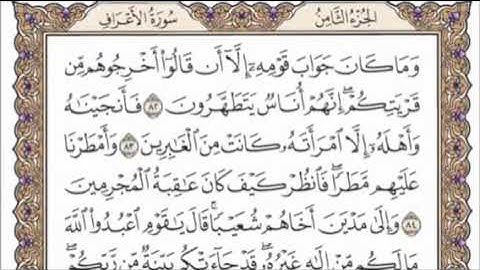 سُورَةُ الأَعْرَافِ الجُزْءُ الثَّامِنُ
وَمَا كَانَ جَوَابَ قَوْمِهِۦٓ إِلَّآ أَن قَالُوٓا۟ أَخْرِجُوهُم مِّن
قَرْيَتِكُمْ ۖ إِنَّهُمْ أُنَاسٌ يَتَطَهَّرُونَ ٨٢ فَأَنجَيْنَٰهُ
وَأَهْلَهُۥٓ إِلَّا ٱمْرَأَتَهُۥ كَانَتْ مِنَ ٱلْغَٰبِرِينَ ٨٣ وَأَمْطَرْنَا
عَلَيْهِم مَّطَرًا ۖ فَٱنظُرْ كَيْفَ كَانَ عَٰقِبَةُ ٱلْمُجْرِمِينَ
٨٤ وَإِلَىٰ مَدْيَنَ أَخَاهُمْ شُعَيْبًا ۗ قَالَ يَٰقَوْمِ ٱعْبُدُوا۟ ٱللَّهَ
مَا لَكُم مِّنْ إِلَٰهٍ غَيْرُهُۥ ۖ قَدْ جَآءَتْكُم بَيِّنَةٌ مِّن رَّبِّكُمْ ۖ